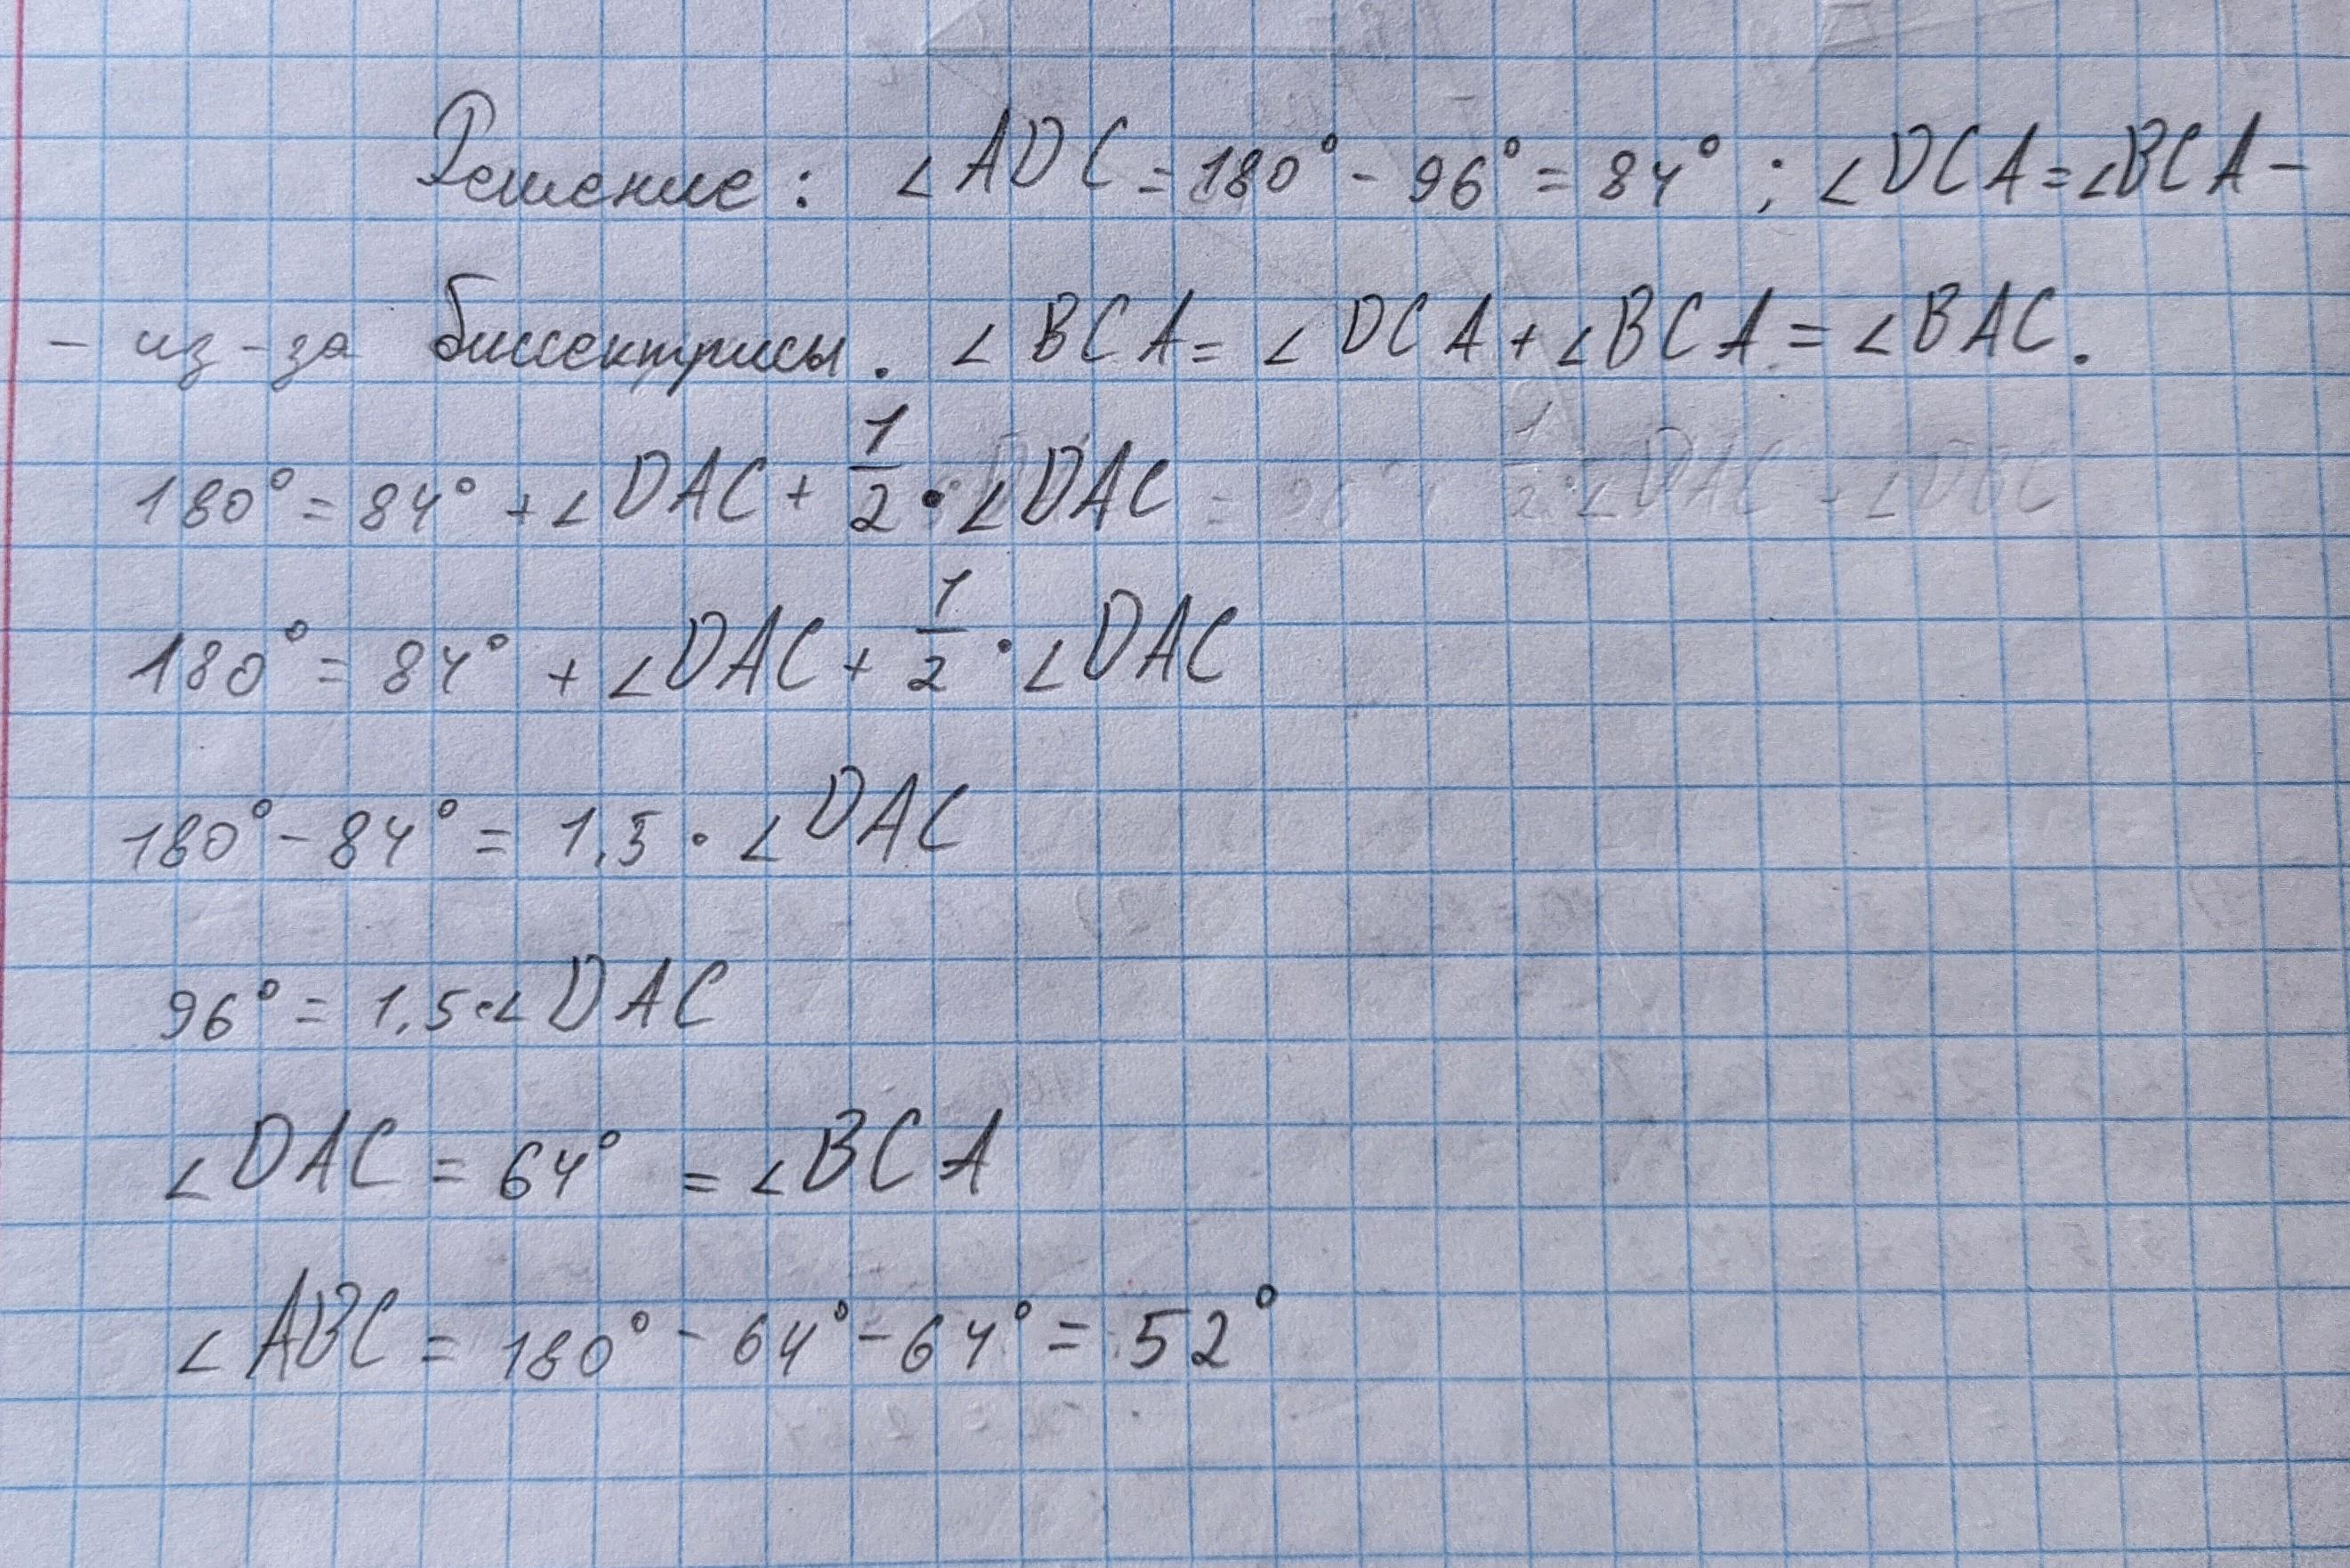 Решение: ∠ADC = 180° - 96° = 84° ; ∠DCA = ∠BCA –
– из-за биссектрисы. ∠BCA = ∠DCA + ∠BCA = ∠BAC.
180° = 84° + ∠DAC + 1/2 · ∠DAC = 96° + 1/2 · ∠DAC + ∠DBC
180° = 84° + ∠DAC + 1/2 · ∠DAC
180° - 84° = 1,5 · ∠DAC
96° = 1,5 · ∠DAC
∠DAC = 64° = ∠BCA
∠ABC = 180° - 64° - 64° = 52°